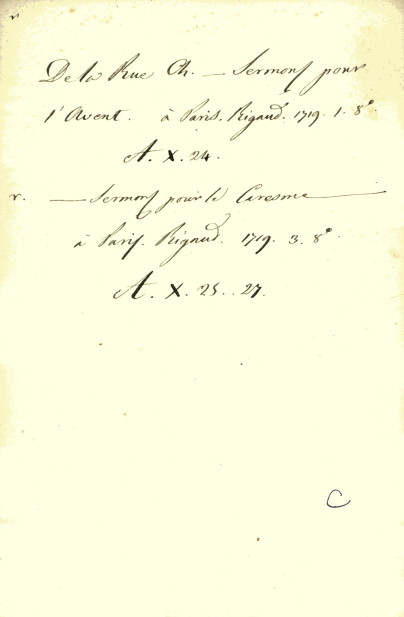 r
De la Rue Ch. — Sermons pour
l'Avent. à Paris. Rigaud. 1719. 1. 8°.
A. X. 24.
r. — Sermons pour le Caresme —
à Paris. Rigaud. 1719. 3. 8°.
A. X. 25..27.
C